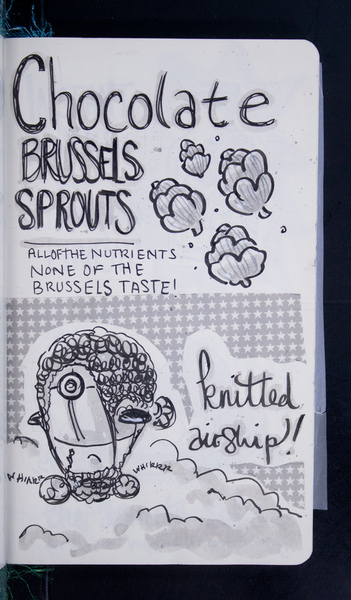 Chocolate
BRUSSELS
SPROUTS
ALL OF THE NUTRIENTS
NONE OF THE
BRUSSELS TASTE!
knitted
airship!!
WHIRRR
WHIRRR